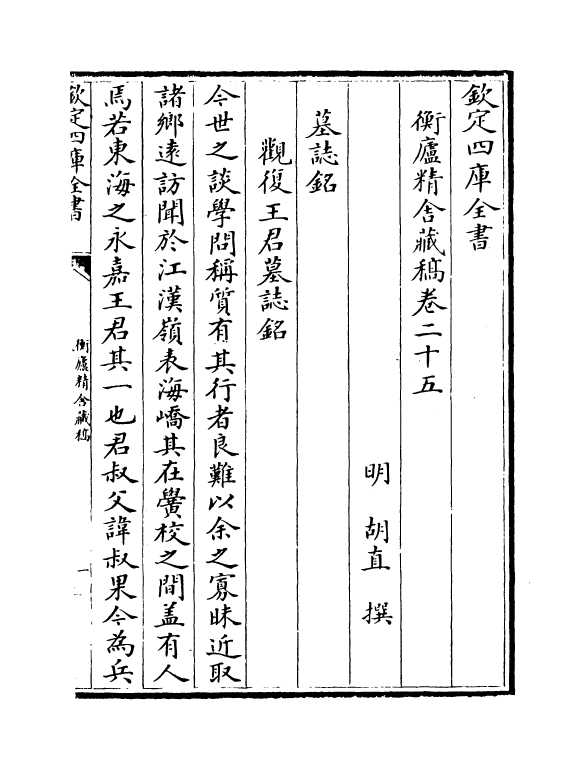 欽定四庫全書
衡廬精舍藏稿卷二十五
明 胡直 撰
墓誌銘
觀復王君墓誌銘
今世之談學問稱質有其行者良難以余之寡昧近取
諸鄉遠訪聞於江漢嶺表海嶠其在黌校之間盖有人
焉若東海之永嘉王君其一也君叔父諱叔果今為兵
欽定四庫全書
衡廬精舍藏稿
一